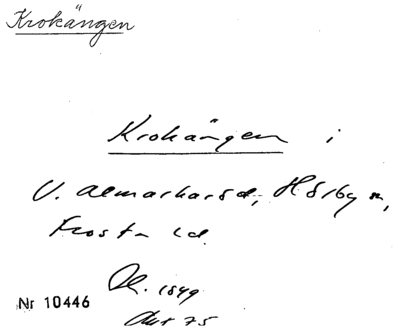 Krokängen
Krokängen i
V. Almarharad, Hörby sn,
Frosta hd.
1849
Nr 10446
Akt 75